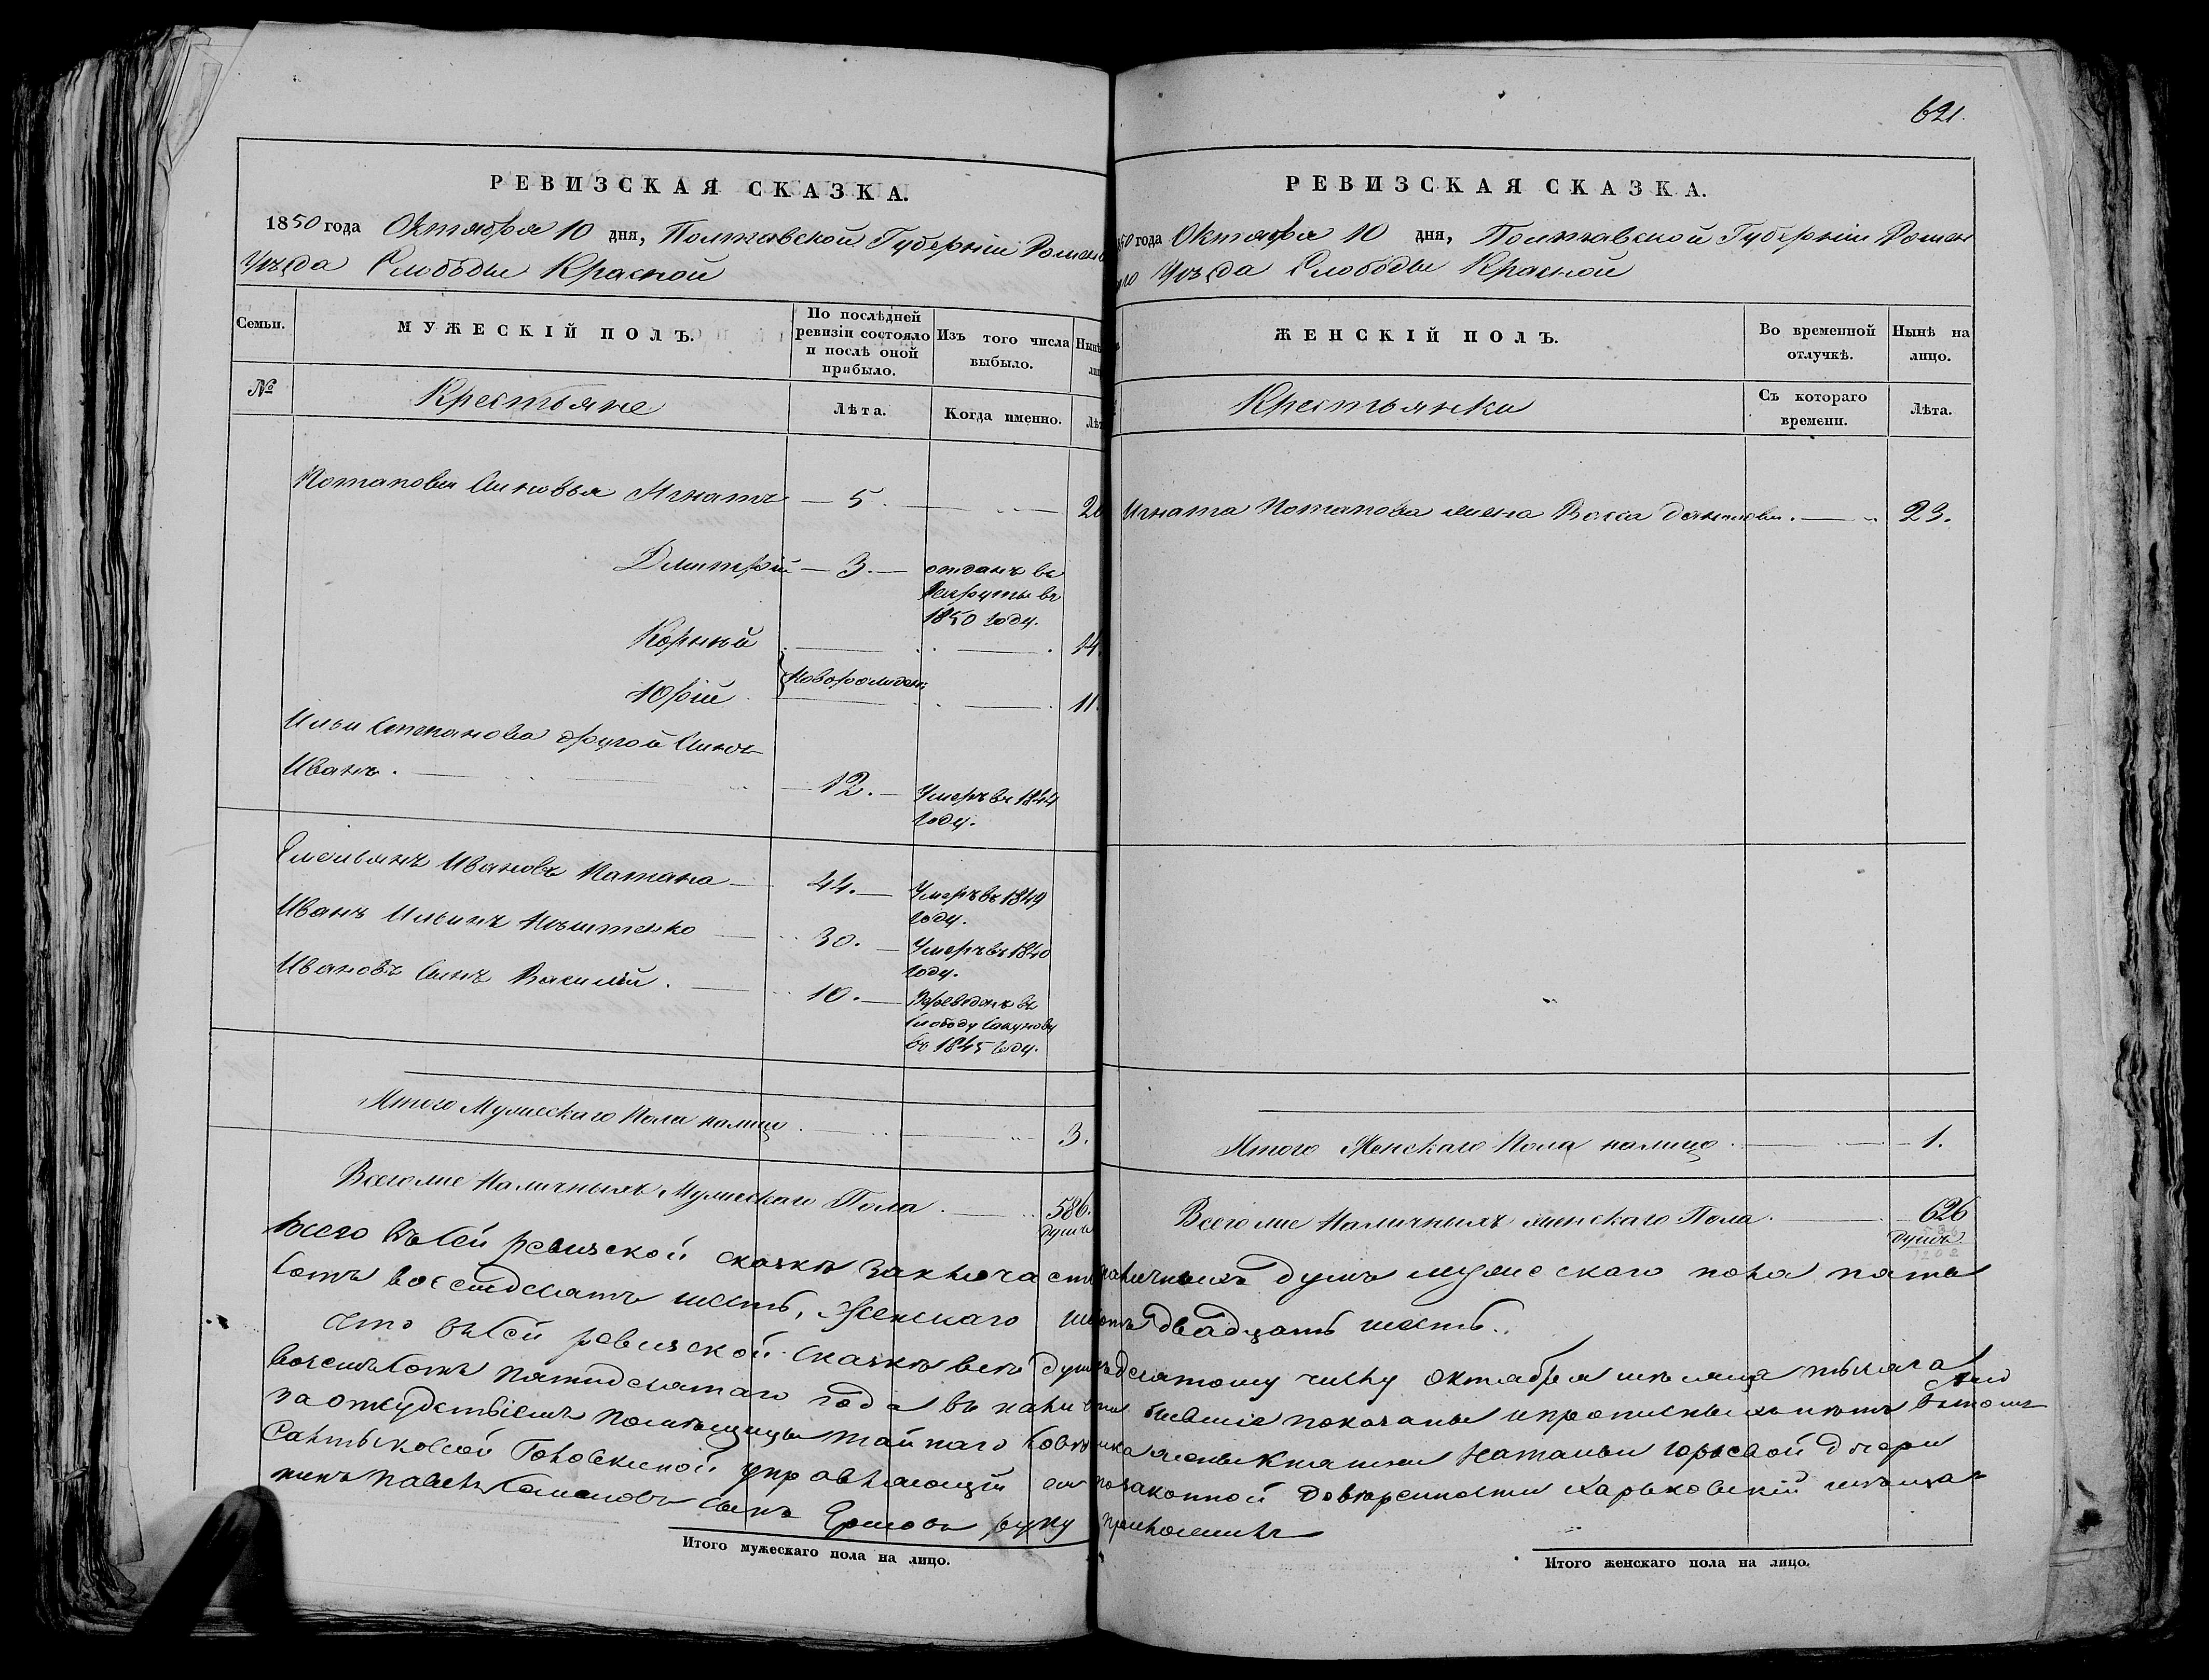 621.
РЕВИЗСКАЯ СКАЗКА.
1850 года Октября 10 дня, Полтавской Губерніи Роменс
Уѣзда Слободы Красной
Семьи.
МУЖЕСКІЙ ПОЛЪ.
По послѣдней
ревизіи состояло
и послѣ оной
прибыло.
Изъ того числа
выбыло.
Нынѣ
№
Крестьяне
Лѣта.
Когда именно.
Потаповы Сыновья Игнатъ — 5. — 20
Дмитрій — 3. — отданъ въ
Рекруты въ
1850 году.
Корный 14.
Новорожден
Юрій 11.
Ильи Степанова другой Сынъ
Иванъ. — 12. — Умеръ въ 1844
году.
Емельянъ Ивановъ — 44. — Умеръ въ 1849
году.
Иванъ Ильинъ — 30. — Умеръ въ 1840
году.
Ивановъ Сынъ Василій. — 10. — Переведенъ въ
Слободу
въ 1845 году.
Итого Мужескаго Пола налицо 3.
Всего же Наличныхъ Мужескаго Пола. — 586.
душъ
РЕВИЗСКАЯ СКАЗКА.
50 года Октября 10 дня, Полтавской Губерніи Роменс
го Уѣзда Слободы Красной
ЖЕНСКІЙ ПОЛЪ.
Во временной
отлучкѣ.
Нынѣ на
лицо.
Крестьянки
Съ котораго
времени.
Лѣта.
Игната Потапова жена Данилова. — 23.
Итого Женскаго Пола налицо. — 1.
Всего же Наличныхъ женскаго Пола. — 626
душъ.
Всего въ сей ревизской сказкѣ заключается наличныхъ душъ мужескаго пола пять
сотъ восемдесятъ шесть, женскаго шесть сотъ двадцать шесть..
Что въ сей ревизской сказкѣ всѣ души къ десятому числу октября мѣсяца тысяча
восемь сотъ пятидесятаго года въ наличности бывшіе показаны и прописныхъ нѣтъ въ томъ
за отсудствіемъ помѣщицы тайнаго совѣтника жены княгини Натальи Юрьевой дочери
Салтыковой Головкиной управляющій ею по законной довѣренности харьковскій мѣща-
нинъ Павелъ Семеновъ сынъ Ершовъ руку приложилъ
Итого мужескаго пола на лицо.
Итого женскаго пола на лицо.